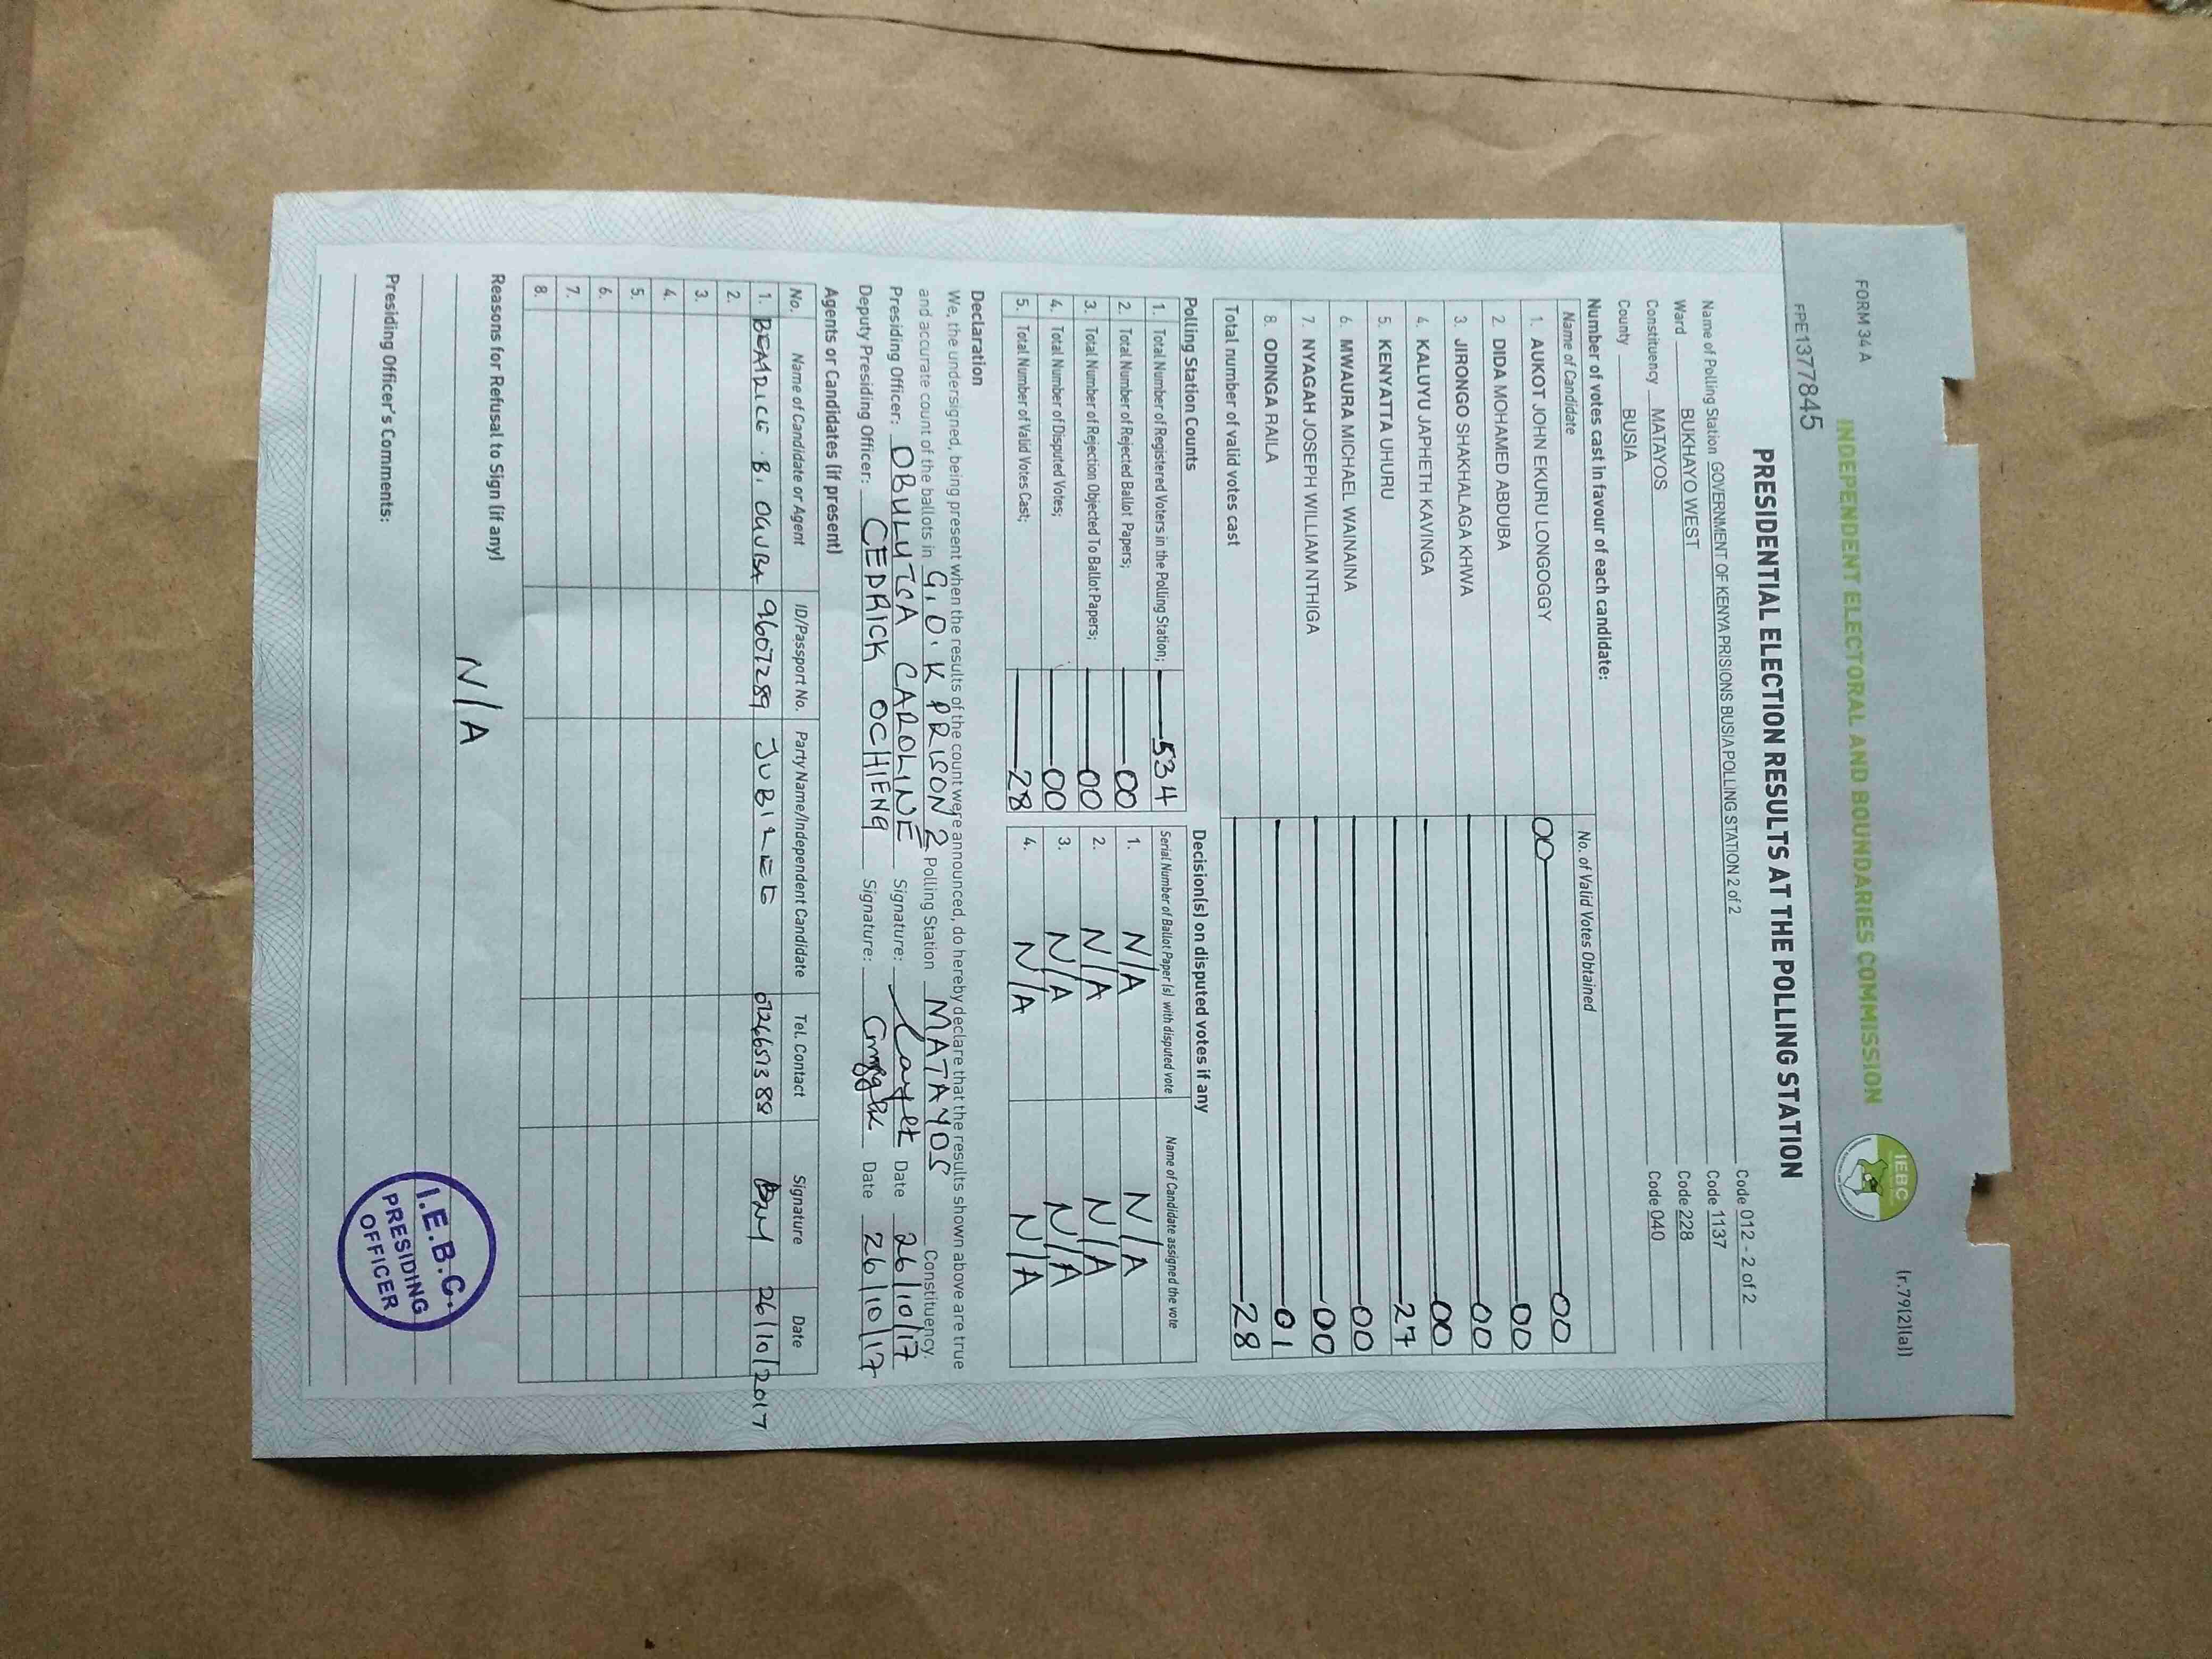 FORM 34 A
(r.79(2)(a))
INDEPENDENT ELECTORAL AND BOUNDARIES COMMISSION
IEBC
FPE1377845
PRESIDENTIAL ELECTION RESULTS AT THE POLLING STATION
Name of Polling Station GOVERNMENT OF KENYA PRISIONS BUSIA POLLING STATION 2 of 2 Code 012 - 2 of 2
Ward BUKHAYO WEST Code 1137
Constituency MATAYOS Code 228
County BUSIA Code 040
Number of votes cast in favour of each candidate:
Name of Candidate No. of Valid Votes Obtained
1. AUKOT JOHN EKURU LONGOGGY 00 00
2. DIDA MOHAMED ABDUBA 00
3. JIRONGO SHAKHALAGA KHWA 00
4. KALUYU JAPHETH KAVINGA 00
5. KENYATTA UHURU 27
6. MWAURA MICHAEL WAINAINA 00
7. NYAGAH JOSEPH WILLIAM NTHIGA 00
8. ODINGA RAILA 01
Total number of valid votes cast 28
Polling Station Counts
1. Total Number of Registered Voters in the Polling Station; 534
2. Total Number of Rejected Ballot Papers; 00
3. Total Number of Rejection Objected To Ballot Papers; 00
4. Total Number of Disputed Votes; 00
5. Total Number of Valid Votes Cast; 28
Decision(s) on disputed votes if any
Serial Number of Ballot Paper (s) with disputed vote Name of Candidate assigned the vote
1. N/A N/A
2. N/A N/A
3. N/A N/A
4. N/A N/A
Declaration
We, the undersigned, being present when the results of the count were announced, do hereby declare that the results shown above are true
and accurate count of the ballots in G.O.K PRISON 2 Polling Station MATAYOS Constituency.
Presiding Officer: OBULUTSA CAROLINE Signature: Date 26/10/17
Deputy Presiding Officer: CEDRICK OCHIENG Signature: Date 26/10/17
Agents or Candidates (if present)
No. Name of Candidate or Agent ID/Passport No. Party Name/Independent Candidate Tel. Contact Signature Date
1. BEADRICE B. OGUBA 9607289 JUBILEE 26/10/2017
2.
3.
4.
5.
6.
7.
8.
Reasons for Refusal to Sign (if any)
N/A
Presiding Officer's Comments:
I.E.B.C.
PRESIDING
OFFICER